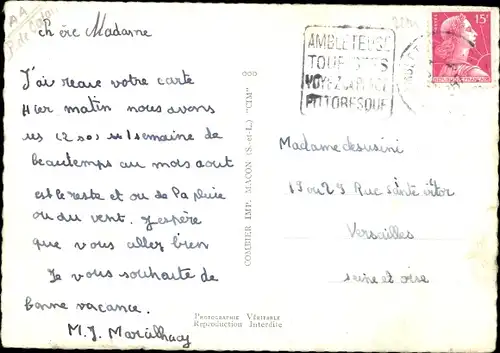 chère Madame
J'ai reçue votre carte
Hier matin nous avons
eus 1 semaine de
beautemps au mois aout
est le reste et ou de la pluie
ou du vent. J'espère
que vous allez bien
Je vous souhaite de
bonne vacance.
M. J. Marcilhacy
COMBIER IMP. MACON (S.-et-L.) "CIM"
Photographie Véritable
Reproduction Interdite
AMBLETEUSE
PITTORESQUE
15F
Madame desusini
19 ou 29 Rue Sainte victor
Versailles
seine et oise